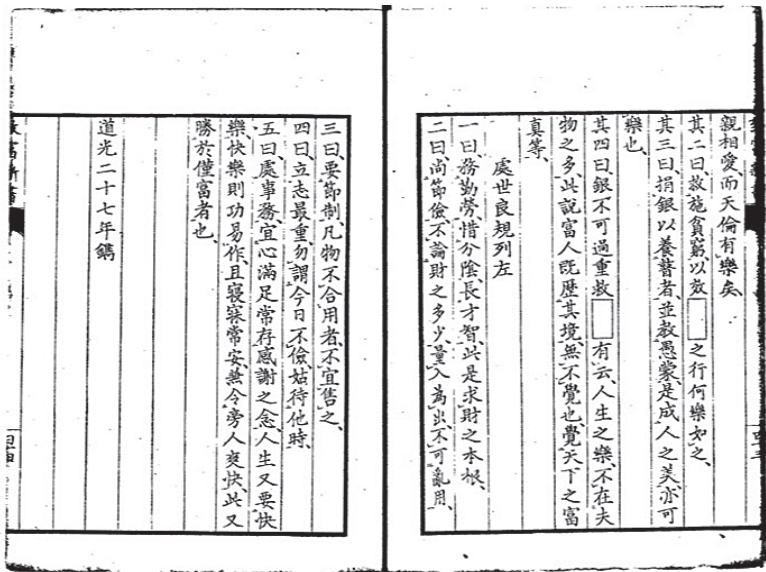 親相愛、而天倫有樂矣、
其二曰、救施貧窮、以效
之行、何樂如之、
其三曰、捐銀以養瞽者、並教愚蒙、是成人之美、亦可
樂也、
其四曰、銀不可過重、故
有云、人生之樂、不在夫
物之多、此說富人既歷其境、無不覺也、覺天下之富
真等、
處世良規列左
一曰、務勤勞、惜分陰、長才智、此是求財之本根、
二曰、尚節儉、不論財之多少、量入為出、不可亂用、
三曰、要節制、凡物不合用者、不宜售之、
四曰、立志最重、勿謂今日不儉、姑待他時、
五曰、處事務宜心滿足、常存感謝之念、人生又要快
樂、快樂則功易作、且寢寐常安、兼令旁人爽快、此又
勝於僅富者也、
道光二十七年鐫
致富新書